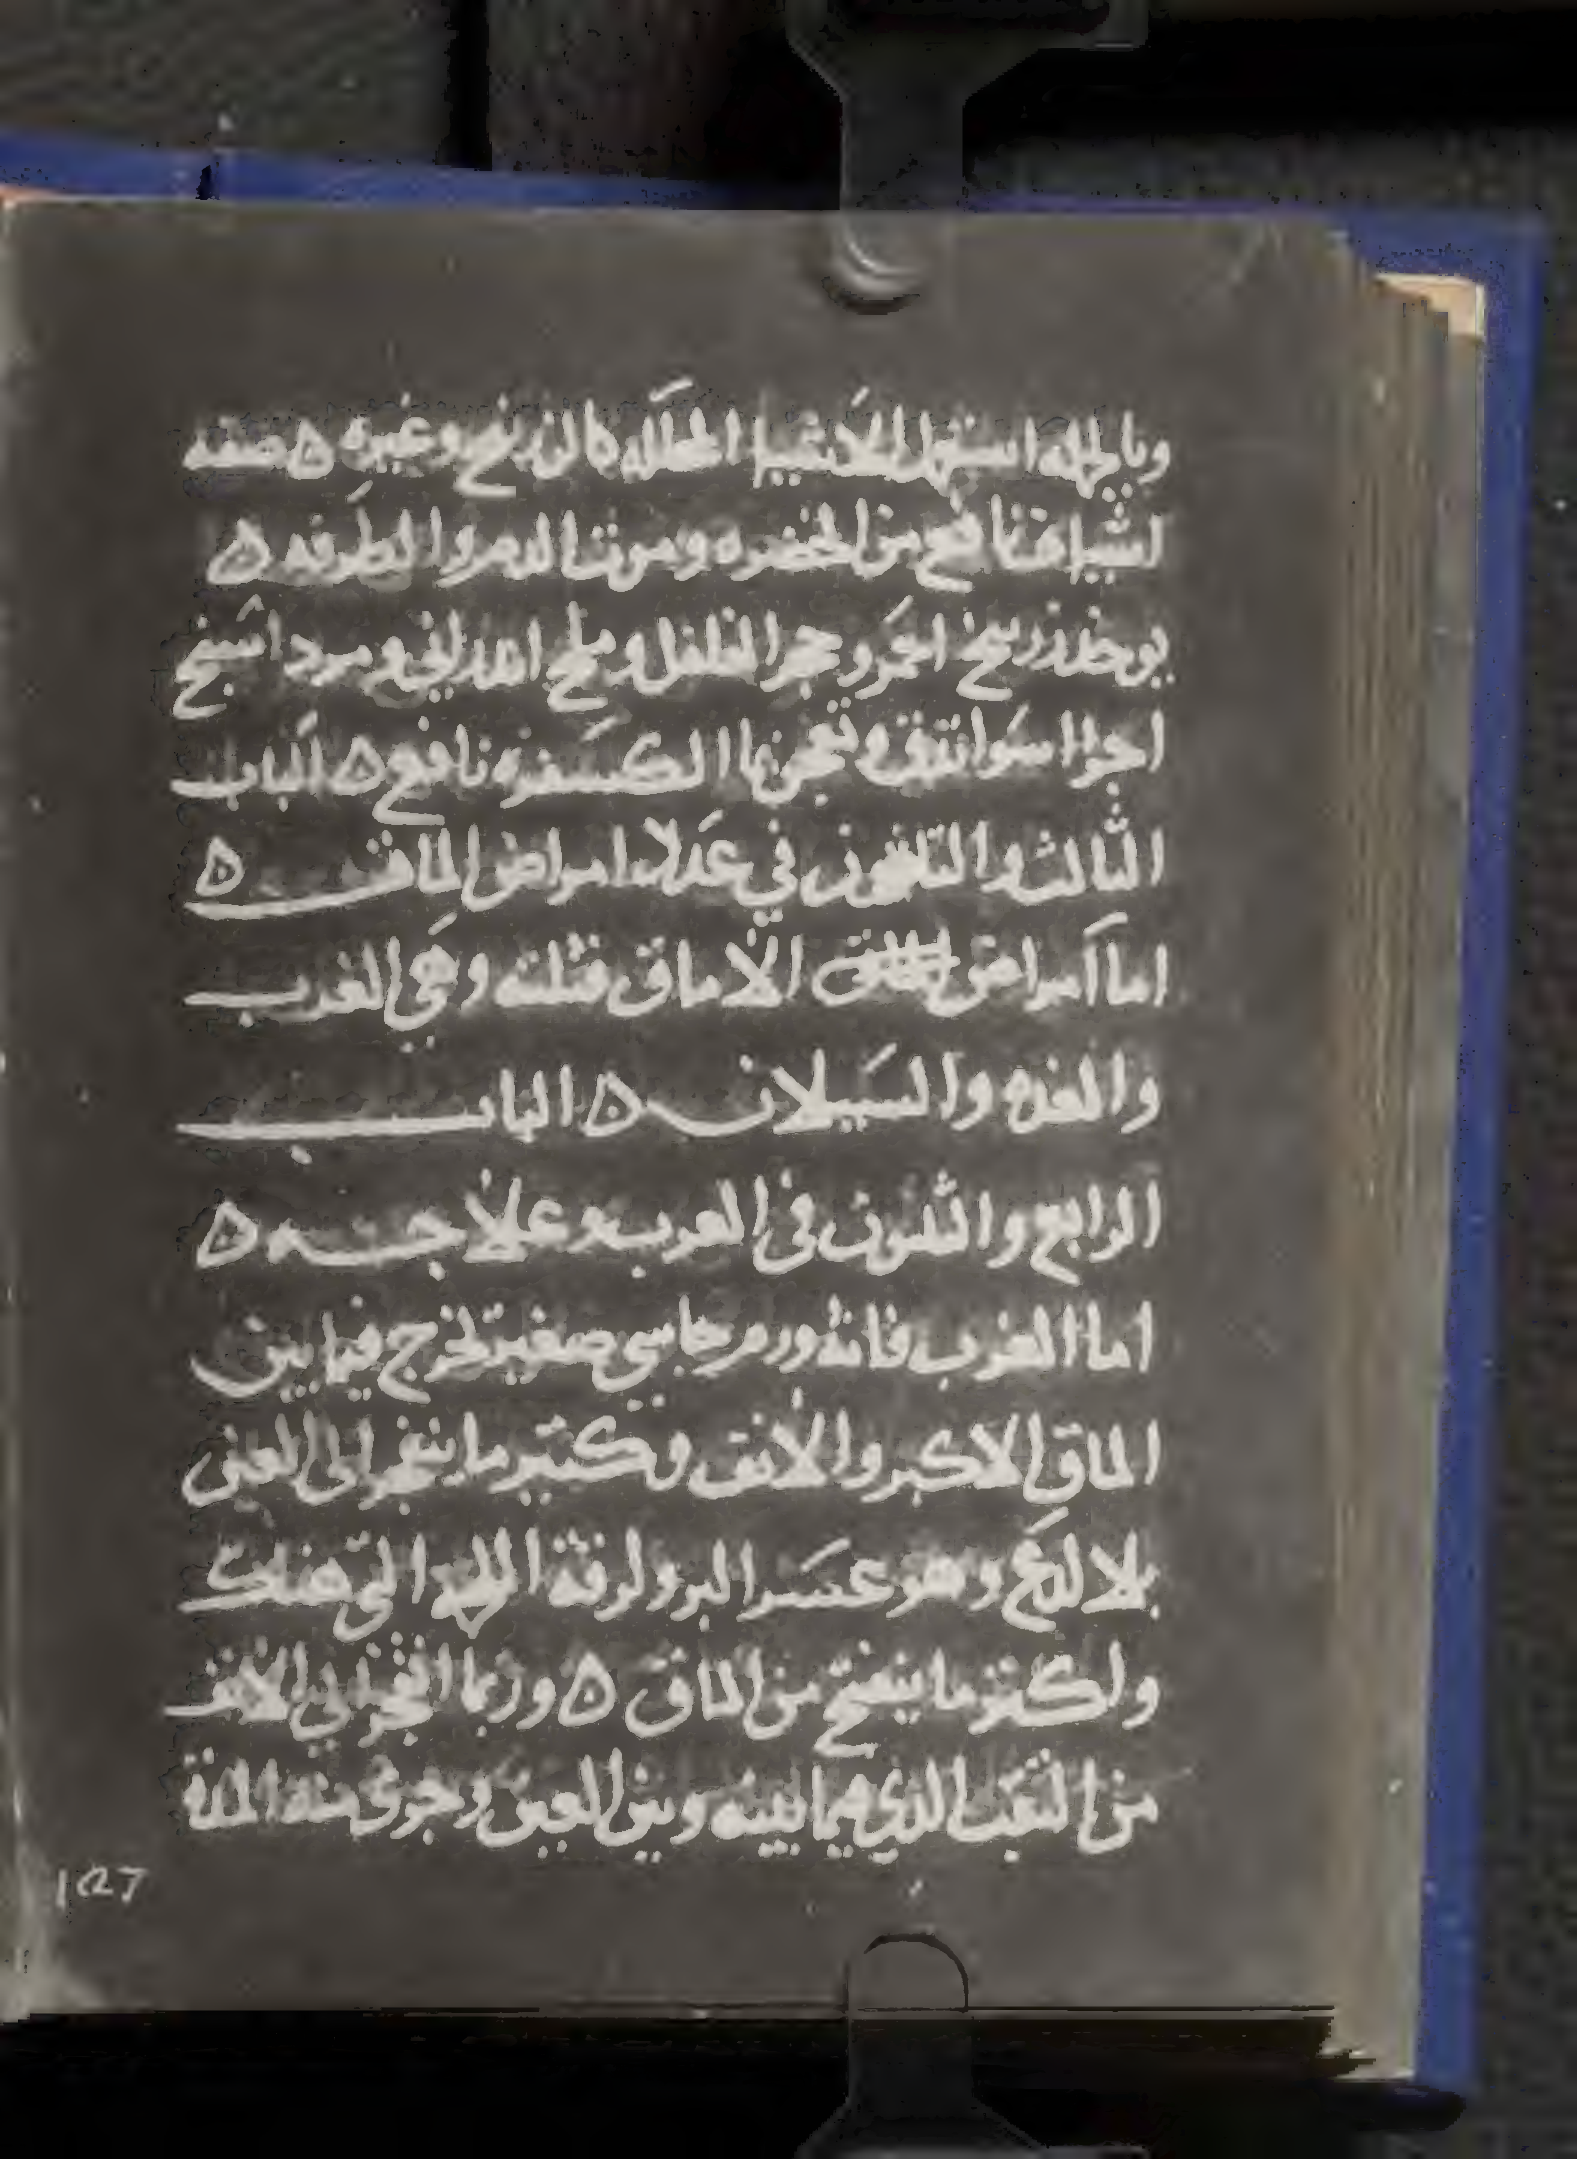 وبالجمله استعمل الاشيا المحلله كالزرنيخ وغيره ه صفه
اشياف نافع من الخضره وموت الدم والطرفه ه
يوخذ زرنيخ احمر وحجر الفلفل وملح اندراني و اشبخ
اجزا سوا تدق وتعجن بما الكسفره نافع ه الباب
الثالث والثلثون في عدد امراض الماق ه
اما امراض الاماق فثلثه وهي الغرب
والغده والسيلان ه الباب
الرابع والثلثون في الغرب وعلاجه ه
اما الغرب فانه ورم صغير تخرج فيما بين
الماق الاكبر والانف وكثير ما ينفجر الى العين
بلا لدع وهو عسر البرو لرقة التي هناك
ولكثر ما ينفتح من الماق ه وربما انفجر الي الانف
من الثقب الذي فيما بينه وبين العين وجرى منه المدة
127